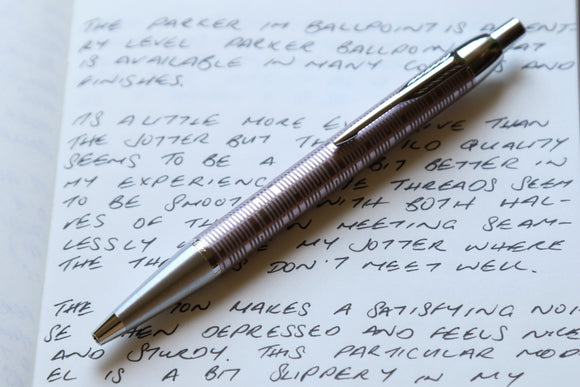 THE PARKER IM BALLPOINT IS A ENT-
RY LEVEL PARKER BALLPOIN AT
IS AVAILABLE IN MANY CO AND
FINISHES.
ITS A LITTLE MORE EX IVE THAN
THE JOTTER BUT TH ILD QUALITY
SEEMS TO BE A BIT BETTER IN
MY EXPERIENC E THREADS SEEM
TO BE SMOOT WITH BOTH HAL-
VES OF TH N MEETING SEAM-
LESSLY MY JOTTER WHERE
THE TH S DON'T MEET WELL.
THE TON MAKES A SATISFYING NOI-
SE HEN DEPRESSED AND FEELS NICE
AND STURDY. THIS PARTICULAR MOD-
EL IS A BIT SLIPPERY IN MY